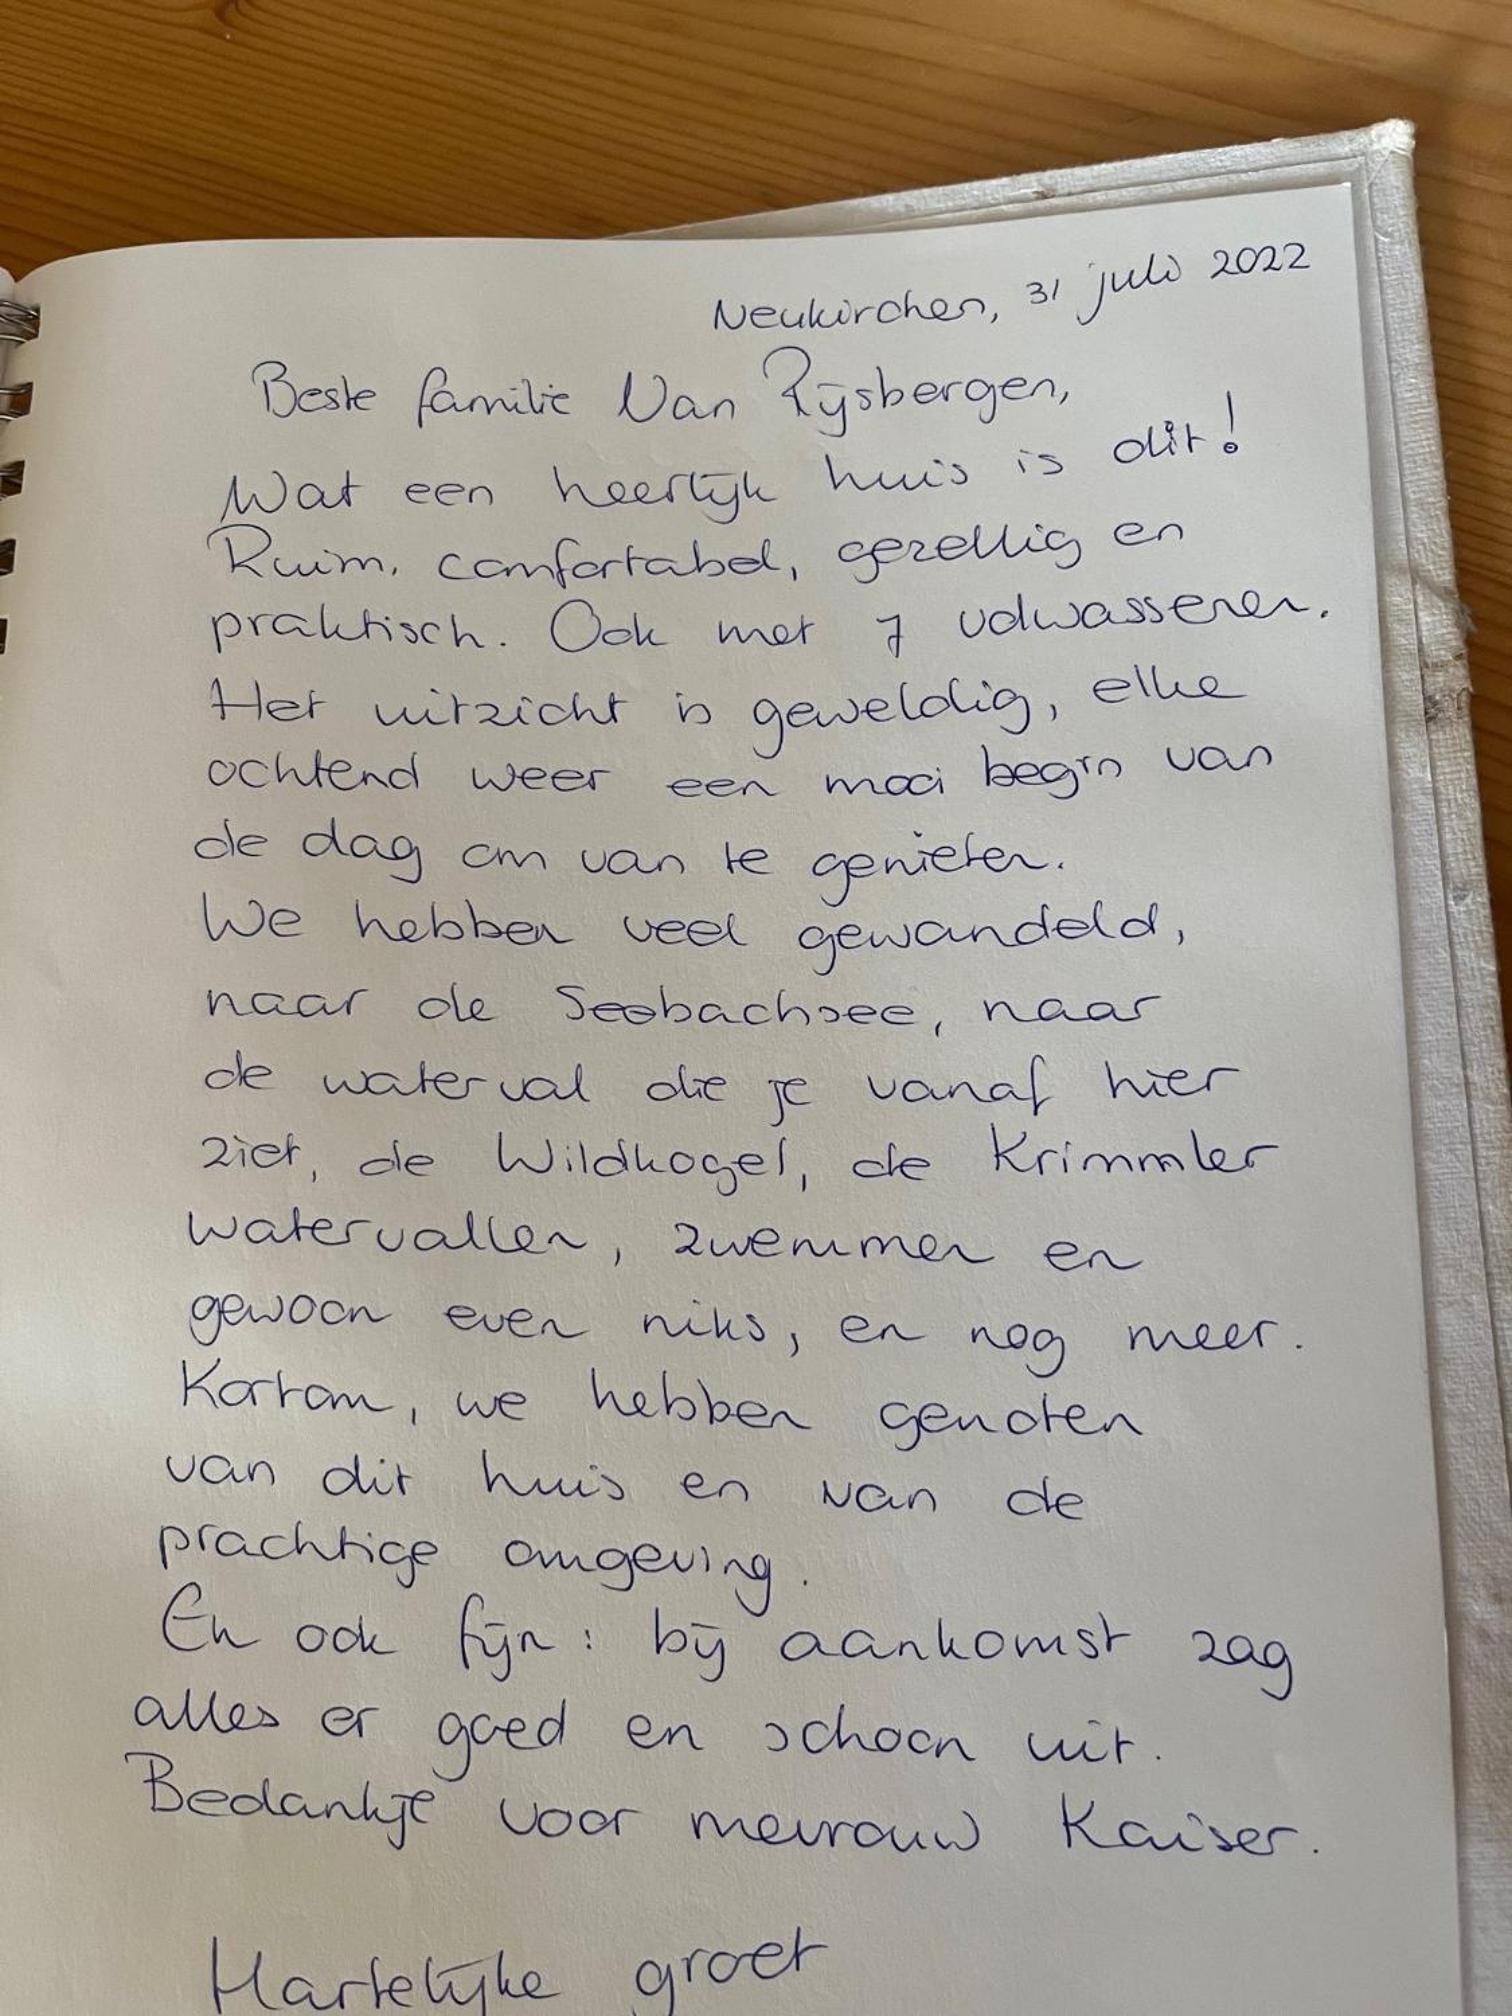 Neukirchen, 31 juli 2022
Beste familie Van Rijsbergen,
Wat een heerlijk huis is dit!
Ruim, comfortabel, gezellig en
praktisch. Ook met 7 volwassenen.
Het uitzicht is geweldig, elke
ochtend weer een mooi begin van
de dag om van te genieten.
We hebben veel gewandeld,
naar de Seebachsee, naar
de waterval die je vanaf hier
ziet, de Wildkogel, de Krimmler
watervallen, zwemmen en
gewoon even niks, en nog meer.
Kortom, we hebben genoten
van dit huis en van de
prachtige omgeving.
En ook fijn: bij aankomst zag
alles er goed en schoon uit.
Bedankje voor mevrouw Kaiser.
Hartelijke groet